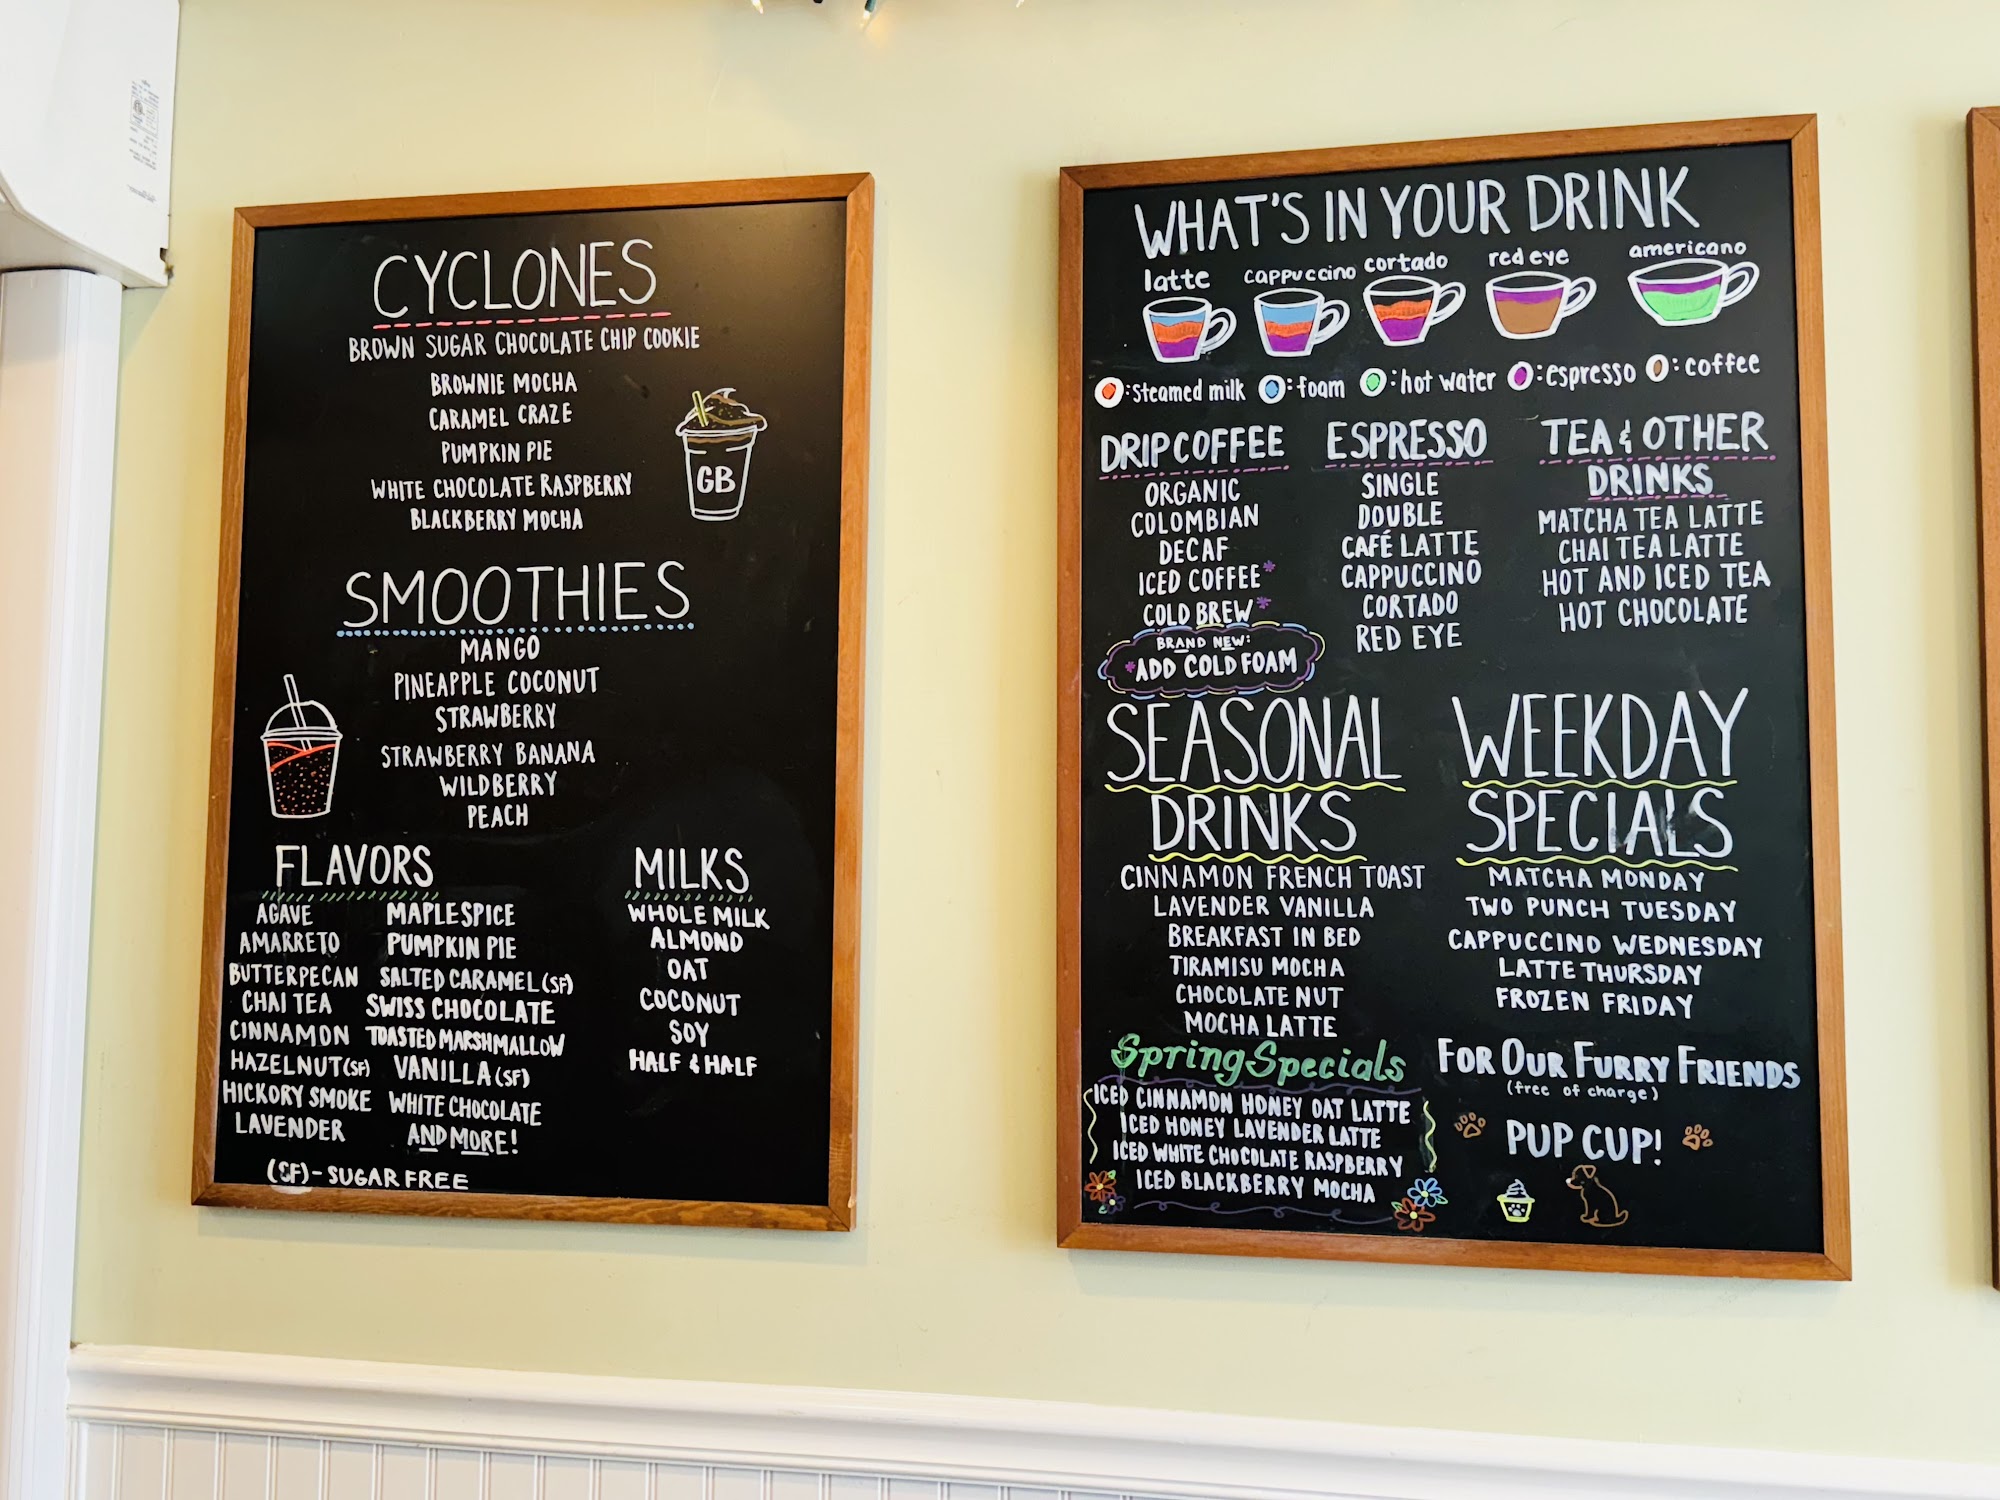 CYCLONES
BROWN SUGAR CHOCOLATE CHIP COOKIE
BROWNIE MOCHA
CARAMEL CRAZE
PUMPKIN PIE
WHITE CHOCOLATE RASPBERRY
BLACKBERRY MOCHA
GB
SMOOTHIES
MANGO
PINEAPPLE COCONUT
STRAWBERRY
STRAWBERRY BANANA
WILDBERRY
PEACH
FLAVORS
AGAVE
AMARRETO
BUTTERPECAN
CHAI TEA
CINNAMON
HAZELNUT (SF)
HICKORY SMOKE
LAVENDER
MAPLE SPICE
PUMPKIN PIE
SALTED CARAMEL (SF)
SWISS CHOCOLATE
TOASTED MARSHMALLOW
VANILLA (SF)
WHITE CHOCOLATE
AND MORE!
(SF) - SUGAR FREE
MILKS
WHOLE MILK
ALMOND
OAT
COCONUT
SOY
HALF & HALF
WHAT'S IN YOUR DRINK
latte cappuccino cortado red eye americano
: steamed milk : foam : hot water : espresso : coffee
DRIP COFFEE
ORGANIC
COLOMBIAN
DECAF
ICED COFFEE*
COLD BREW*
BRAND NEW:
*ADD COLD FOAM
ESPRESSO
SINGLE
DOUBLE
CAFÉ LATTE
CAPPUCCINO
CORTADO
RED EYE
TEA & OTHER
DRINKS
MATCHA TEA LATTE
CHAI TEA LATTE
HOT AND ICED TEA
HOT CHOCOLATE
SEASONAL
DRINKS
CINNAMON FRENCH TOAST
LAVENDER VANILLA
BREAKFAST IN BED
TIRAMISU MOCHA
CHOCOLATE NUT
MOCHA LATTE
Spring Specials
ICED CINNAMON HONEY OAT LATTE
ICED HONEY LAVENDER LATTE
ICED WHITE CHOCOLATE RASPBERRY
ICED BLACKBERRY MOCHA
WEEKDAY
SPECIALS
MATCHA MONDAY
TWO PUNCH TUESDAY
CAPPUCCINO WEDNESDAY
LATTE THURSDAY
FROZEN FRIDAY
FOR OUR FURRY FRIENDS
(free of charge)
PUP CUP!